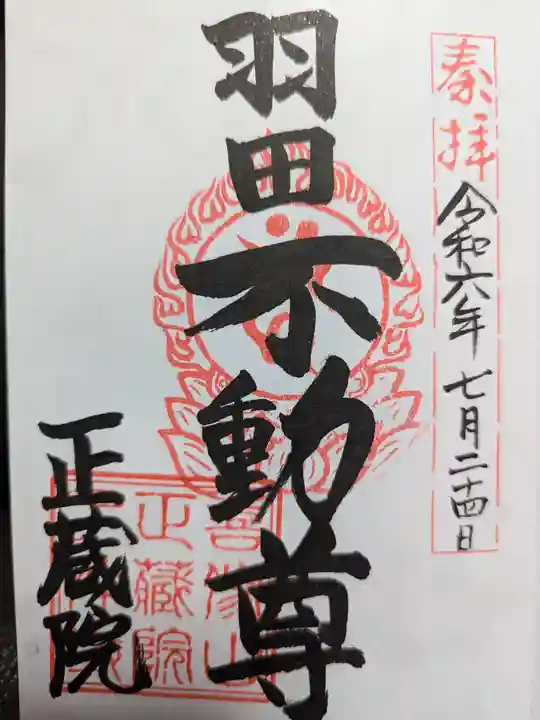 奉拝
令和六年七月二十四日
羽田不動尊
正蔵院